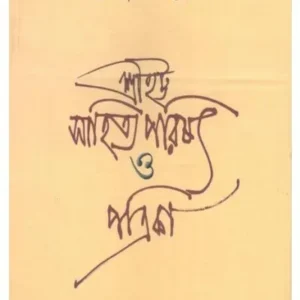 শ্রীহট্ট
সাহিত্য পরিষৎ
ও
পত্রিকা